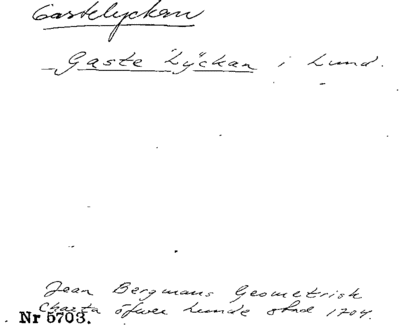 Gastelyckan
Gaste Lÿckan i Lund.
Jean Bergmans Geometrisk
Charta öfwer Lunde stad 1704.
Nr 5703.